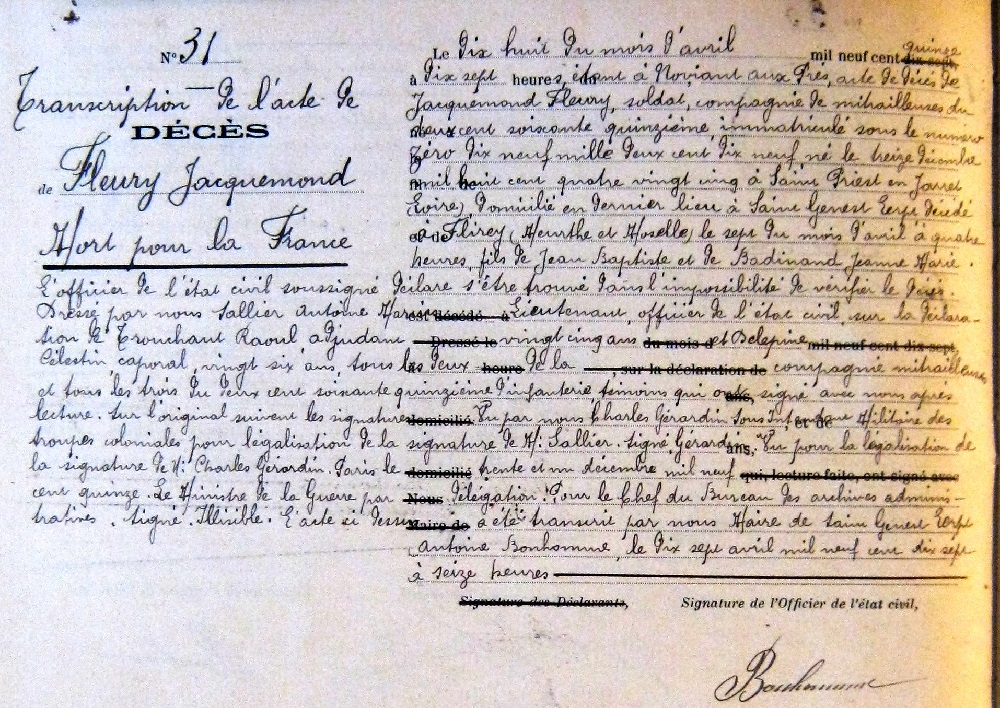 N° 31
Transcription de l'acte de
DÉCÈS
de Fleury Jacquemond
Mort pour la France
Le dix huit du mois d'avril mil neuf cent quinze dix-sept,
à dix sept heures, étant à Noviant aux Prés, acte de décès de
Jacquemond Fleury, soldat, compagnie de mitrailleuses du
deux cent soixante quinzième, immatriculé sous le numéro
zéro dix neuf mille deux cent dix neuf né le treize décembre
mil huit cent quatre vingt cinq à Saint Priest en Jarret
(Loire) domicilié en dernier lieu à Saint Genest Lerpt décédé
à Flirey (Meurthe et Moselle) le sept du mois d'avril à quatre
heures, fils de Jean Baptiste et de Badinand Jeanne Marie.
L'officier de l'état civil soussigné déclare s'être trouvé dans l'impossibilité de vérifier le décès.
Dressé par nous Sallier Antoine Marius est décédé à Lieutenant, officier de l'état civil, sur la déclara-
tion de Trouchant Raoul adjudant Dressé le vingt cinq ans du mois d et Delepine mil neuf cent dix-sept,
Célestin, caporal, vingt six ans, tous les deux heure de la , sur la déclaration de compagnie mitrailleuses
et tous les trois du deux cent soixante quinzième d'infanterie, témoins qui ont ans, signé avec nous après
lecture. Sur l'original suivent les signatures domicilié Vu par nous Charles Gérardin Sous Intendant et de Militaire des
troupes coloniales pour légalisation de la signature de M. Sallier. Signé Gérardin ans, Vu pour la légalisation de
la signature de M. Charles Gérardin. Paris le domicilié trente et un décembre mil neuf qui, lecture faite, ont signé avec
cent quinze. Le Ministre de la Guerre par Nous délégation. Pour le Chef du Bureau des archives adminis-
tratives. Signé. Illisible. L'acte ci dessus Maire de a été transcrit par nous Maire de Saint Genest Lerpt
Antoine Bonhomme, le dix sept avril mil neuf cent dix sept
à seize heures
Signature des Déclarants, Signature de l'Officier de l'état civil,
Bonhomme